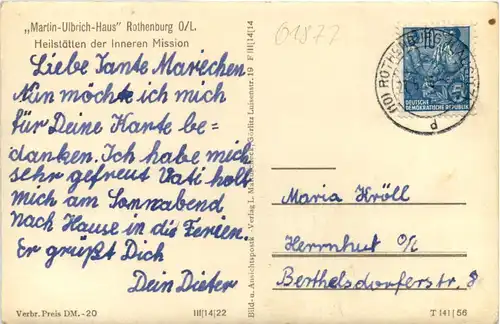 „Martin-Ulbrich-Haus" Rothenburg O/L.
Heilstätten der Inneren Mission
Liebe Tante Mariechen
Nun möchte ich mich
für Deine Karte be=
danken. Ich habe mich
sehr gefreut Vati holt
mich am Sonnabend
nach Hause in die Ferien.
Er grüßt Dich
Dein Dieter
Verbr. Preis DM.-20
III|14|22
F III|14|14
Bild- u. Ansichtspostk. Verlag L. Görlitz Luisenstr. 19
01877
(10) ROTHENBURG
d
10
DEUTSCHE
DEMOKRATISCHE REPUBLIK
Maria Kröll
Herrnhut O/L
Berthelsdorferstr. 8
T 141|56